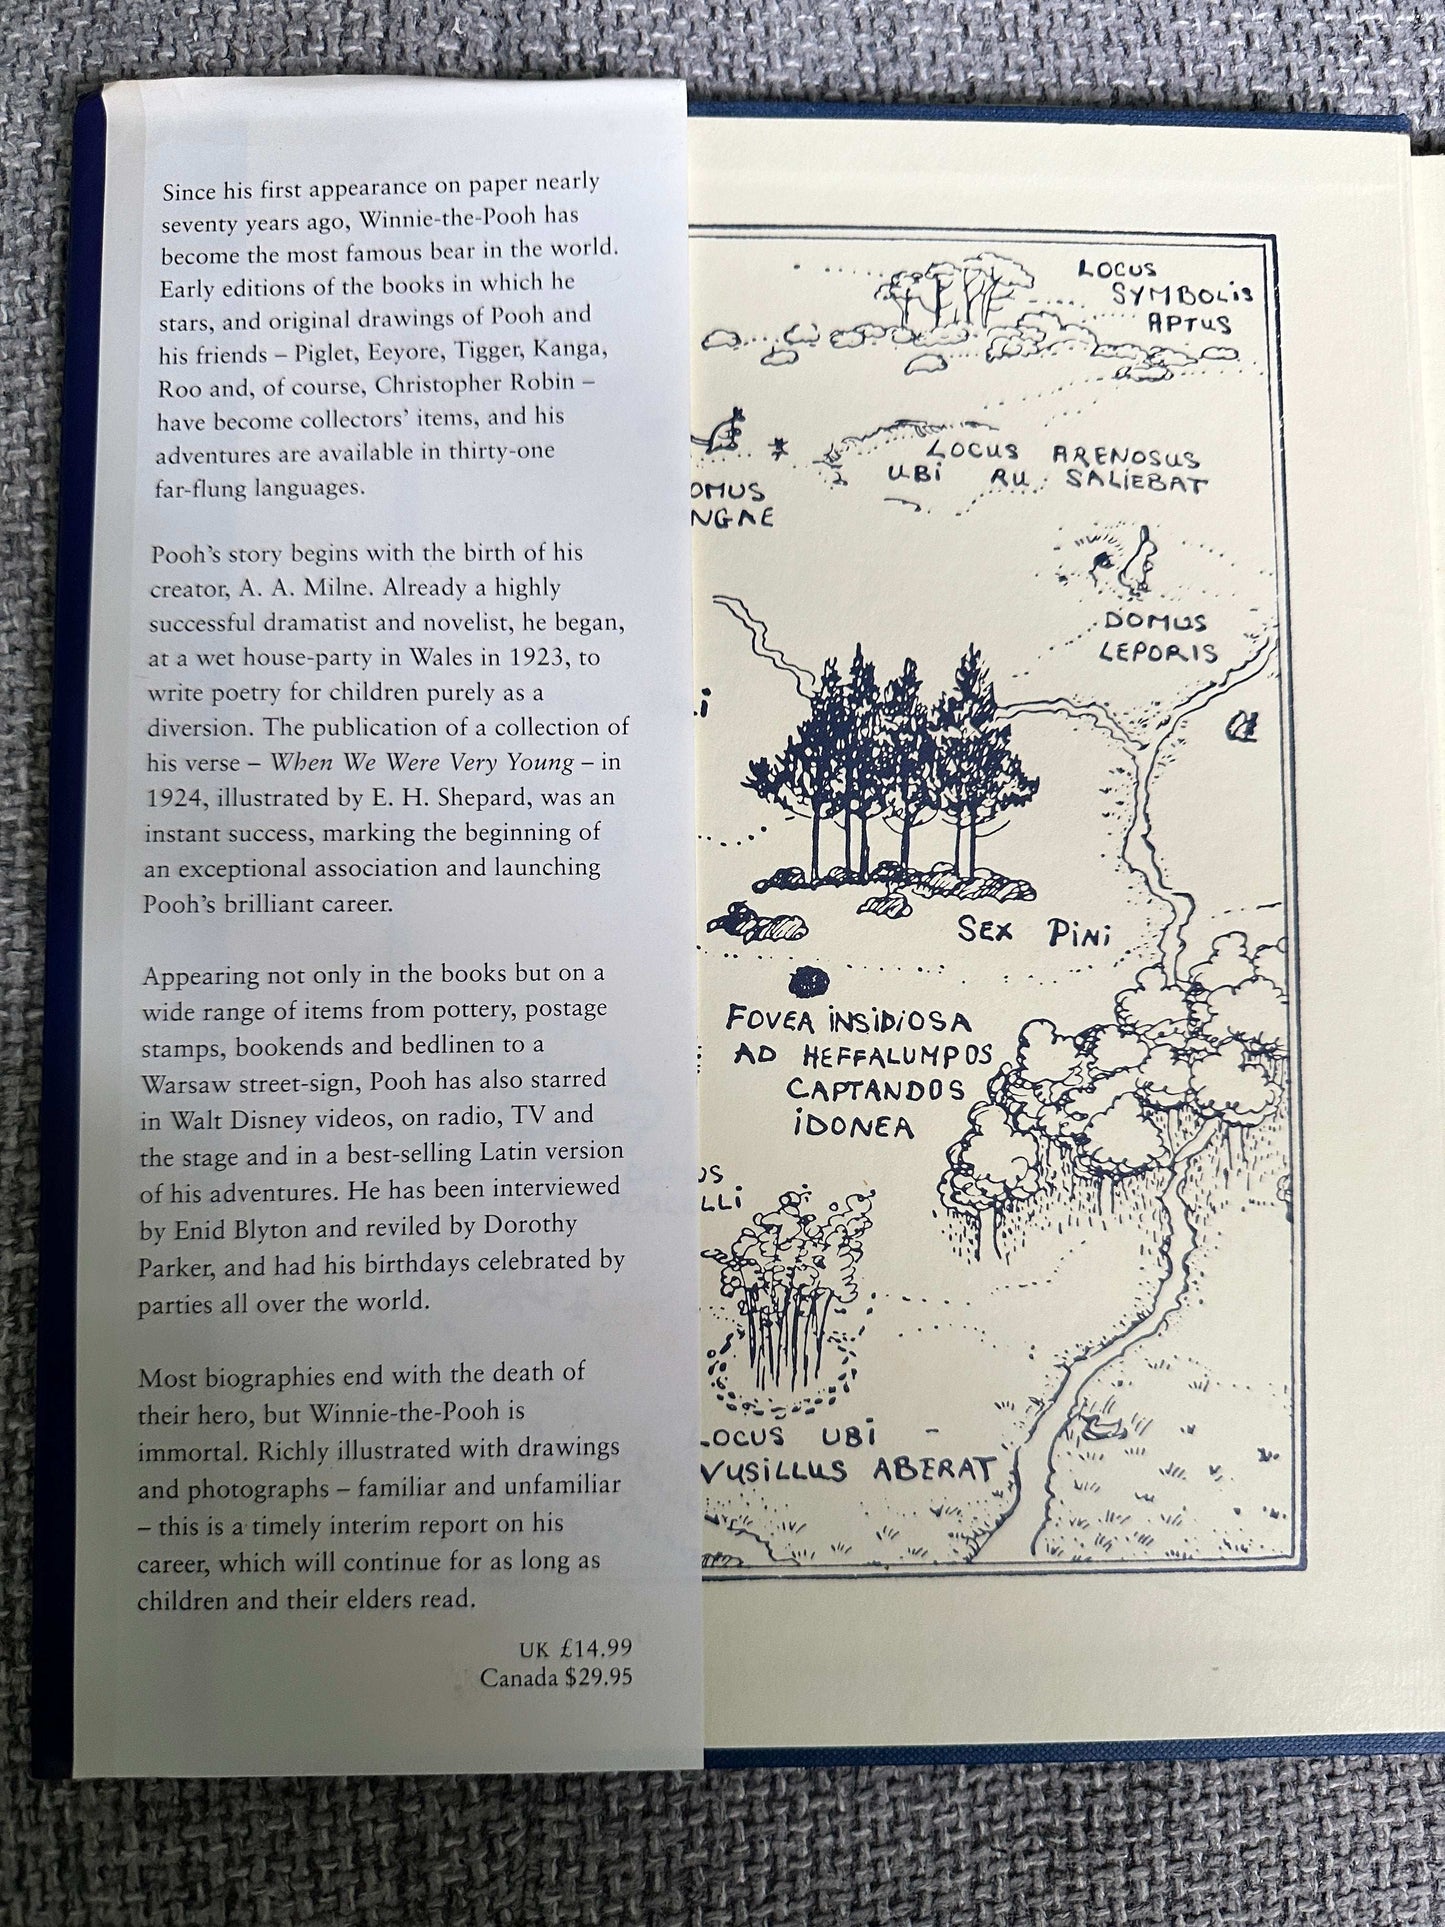 Since his first appearance on paper nearly
seventy years ago, Winnie-the-Pooh has
become the most famous bear in the world.
Early editions of the books in which he
stars, and original drawings of Pooh and
his friends – Piglet, Eeyore, Tigger, Kanga,
Roo and, of course, Christopher Robin –
have become collectors' items, and his
adventures are available in thirty-one
far-flung languages.
Pooh's story begins with the birth of his
creator, A. A. Milne. Already a highly
successful dramatist and novelist, he began,
at a wet house-party in Wales in 1923, to
write poetry for children purely as a
diversion. The publication of a collection of
his verse – When We Were Very Young – in
1924, illustrated by E. H. Shepard, was an
instant success, marking the beginning of
an exceptional association and launching
Pooh's brilliant career.
Appearing not only in the books but on a
wide range of items from pottery, postage
stamps, bookends and bedlinen to a
Warsaw street-sign, Pooh has also starred
in Walt Disney videos, on radio, TV and
the stage and in a best-selling Latin version
of his adventures. He has been interviewed
by Enid Blyton and reviled by Dorothy
Parker, and had his birthdays celebrated by
parties all over the world.
Most biographies end with the death of
their hero, but Winnie-the-Pooh is
immortal. Richly illustrated with drawings
and photographs – familiar and unfamiliar
– this is a timely interim report on his
career, which will continue for as long as
children and their elders read.
UK £14.99
Canada $29.95
LOCUS
SYMBOLIS
APTUS
LOCUS ARENOSUS
UBI RU SALIEBAT
OMUS
NGAE
DOMUS
LEPORIS
SEX PINI
FOVEA INSIDIOSA
AD HEFFALUMPOS
CAPTANDOS
IDONEA
US
LLI
LOCUS UBI
VUSILLUS ABERAT